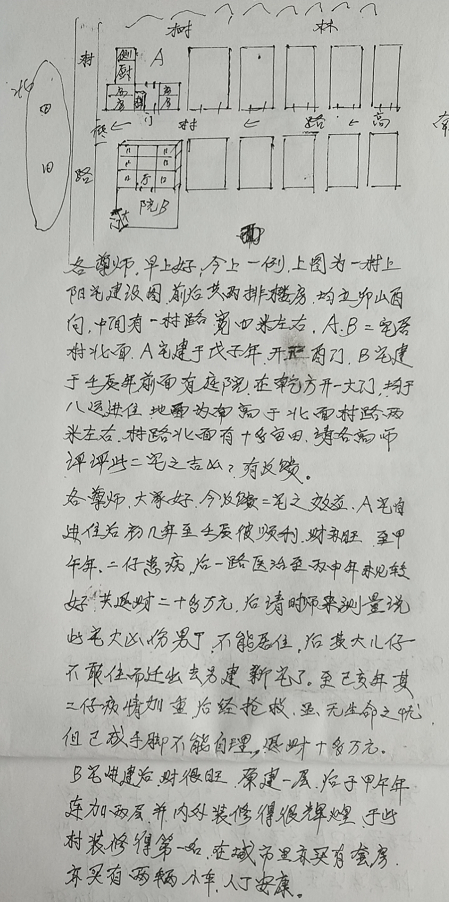 树 林
村 厕 A
厨
房 房
北 门
田 低 ← 村 ← 路 ← 高 南
田 路 厅
院B
各尊师,早上好,今上一例,上图为一村上
阳宅建设图,前后共两排楼房,均立卯山酉
向,中间有一村路宽四米左右,A.B=宅居
村北面,A宅建于戊子年,开酉门,B宅建
于壬辰年前面有庭院,在乾方开一大门,均于
八运进住,地面为南高于北面村路两
米左右,村路北面有十多亩田,请各高师
评评此二宅之吉凶?有反馈。
各尊师,大家好,今反馈二宅之效益,A宅自
进住后初几年至壬辰很顺利,财亦旺,至甲
午年,二仔患病,后一路医治至丙申年见较
好,共退财二十多万元,后请时师来测量说
此宅大凶伤男丁,不能居住,后其大儿仔
不敢住而迁出去另建新宅了。至己亥年其
二仔病情加重后经抢救,虽无生命之忧
但已成手脚不能自理,退财十多万元。
B宅进建后,财很旺,原建一层,后于甲午年
连加两层,并内外装修得很辉煌,于此
村装修得第一名,在城市里亦买有套房,
亦买有两辆小车,人丁安康。